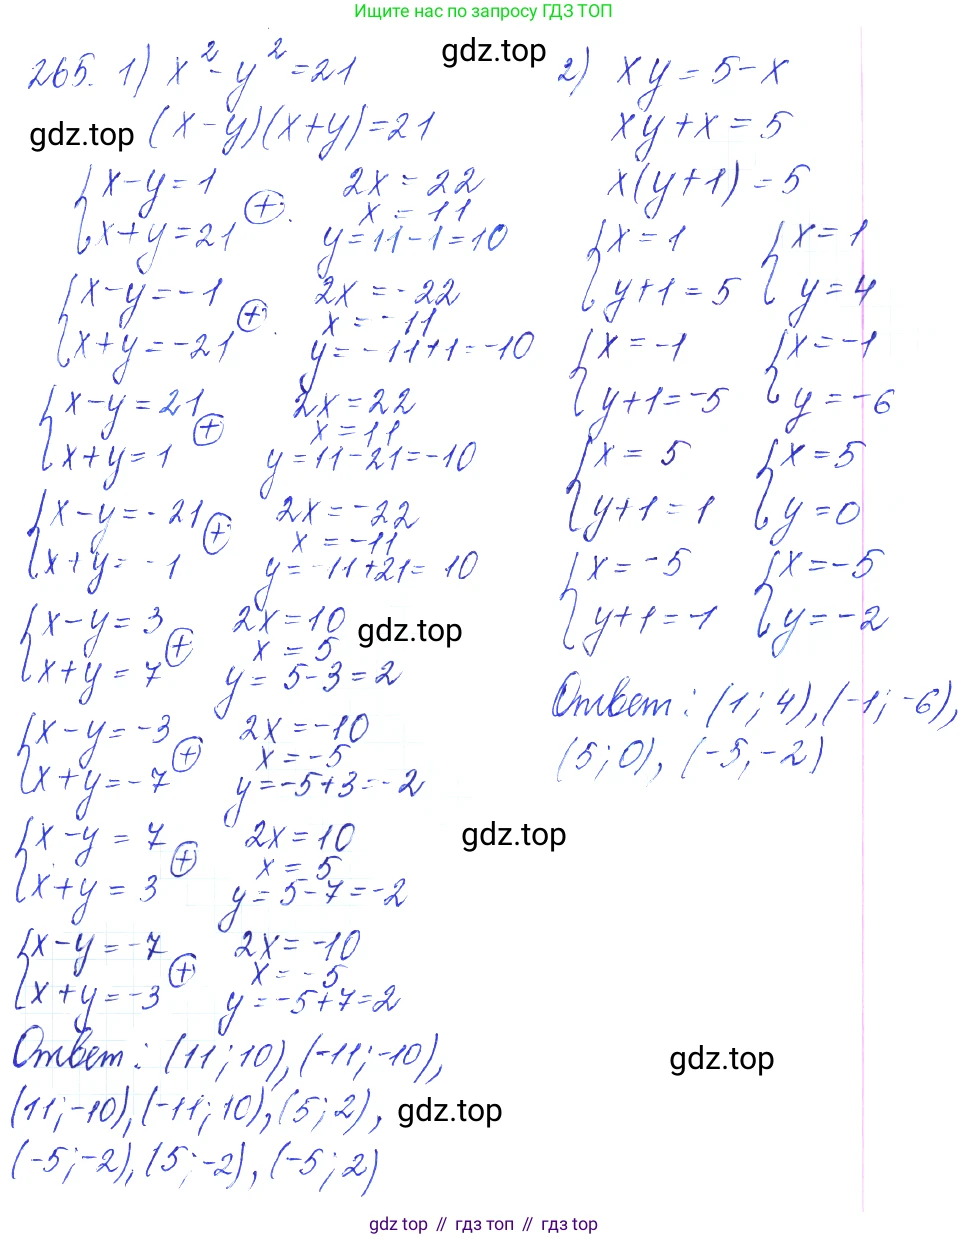 Ищите нас по запросу ГДЗ ТОП
265. 1) x² - y² = 21
gdz.top
(x-y)(x+y)=21
gdz.top
{x-y=1
x+y=21 (+).
2x=22
x=11
y=11-1=10
{x-y=-1
x+y=-21 (+).
2x=-22
x=-11
y=-11+1=-10
{x-y=21
x+y=1 (+)
2x=22
x=11
y=11-21=-10
{x-y=-21
x+y=-1 (+)
2x=-22
x=-11
y=-11+21=10
{x-y=3
x+y=7 (+)
2x=10
x=5
y=5-3=2
gdz.top
{x-y=-3
x+y=-7 (+)
2x=-10
x=-5
y=-5+3=-2
{x-y=7
x+y=3 (+)
2x=10
x=5
y=5-7=-2
{x-y=-7
x+y=-3 (+)
2x=-10
x=-5
y=-5+7=2
Ответ: (11; 10), (-11; -10),
(11; -10), (-11; 10), (5; 2),
(-5; -2), (5; -2), (-5; 2)
gdz.top
2) xy=5-x
xy+x=5
x(y+1)=5
{x=1
y+1=5
{x=1
y=4
{x=-1
y+1=-5
{x=-1
y=-6
{x=5
y+1=1
{x=5
y=0
{x=-5
y+1=-1
{x=-5
y=-2
Ответ: (1; 4), (-1; -6),
(5; 0), (-5, -2)
gdz.top
gdz.top
gdz top // гдз топ // gdz top